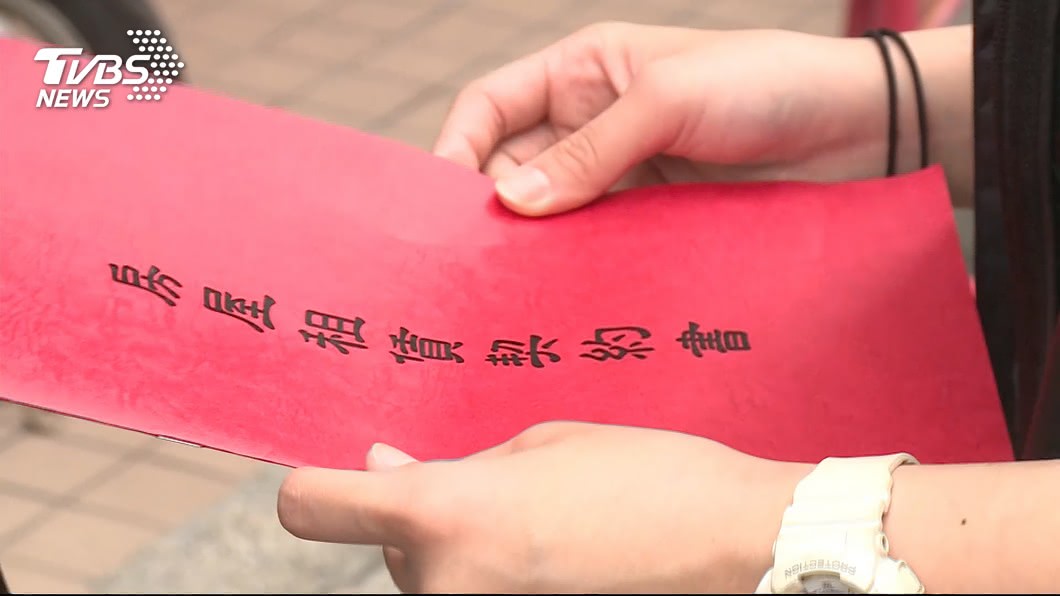 TVBS
NEWS
房屋租賃契約書
PROTECTION